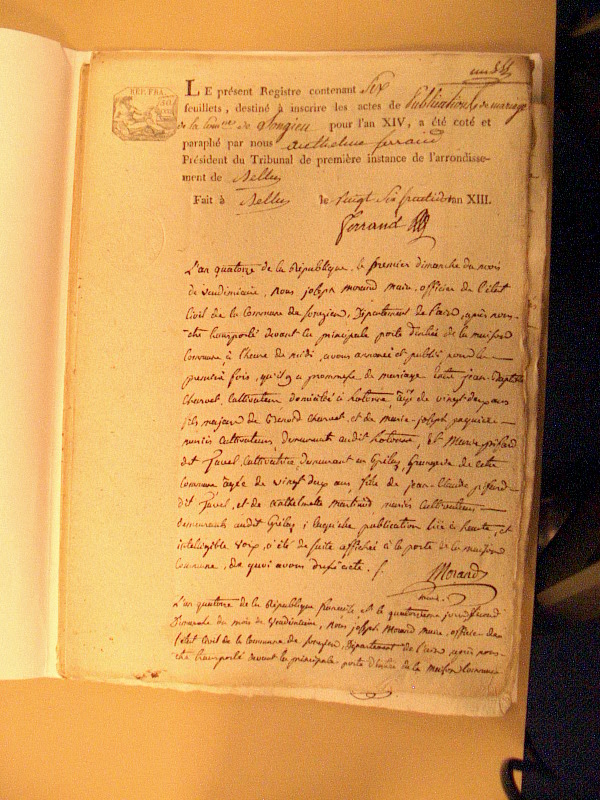 REP. FRA.
LE présent Registre contenant Six
feuillets, destiné à inscrire les actes de Publications de mariage
de la Commune de Songieu pour l'an XIV, a été coté et
paraphé par nous anthelme ferrand
Président du Tribunal de première instance de l'arrondisse-
ment de Belley
Fait à Belley le vingt six fructidor an XIII.
Ferrand
L'an quatorze de la République, le premier dimanche du mois
de vendémiaire, nous joseph morand maire, officier de l'état
Civil de la Commune de songieu, Département de l'ain, après nous
être transporté devant la principale porte d'entrée de la maison
Commune, à l'heure de midi, avons annoncé et publié pour la
première fois, qu'il y a promesse de mariage entre jean Baptiste
Charvet, Cultivateur domicilié à hotonne, âgé de vingt deux ans
fils majeur de Charvet, et de marie joseph
mariés Cultivateurs, demeurant audit hotonne, Et Marie
dit Favel, Cultivatrice, demeurant en de cette
Commune âgée de vingt deux ans, fille de jean Claude
dit Favel, et de anthelmette Martinand mariés Cultivateurs
demeurants audit ; laquelle publication lue à haute, et
intelligible voix, a été de suite affichée à la porte de la maison
Commune, de quoi avons dressé acte.
Morand
maire
L'an quatorze de la République française et le quatorzieme jour second
Dimanche du mois de Vendémiaire, nous joseph Morand maire, officier de
l'état Civil de la Commune de songieu, Département de l'ain, après nous
être transporté devant la principale porte d'entrée de la maison Commune